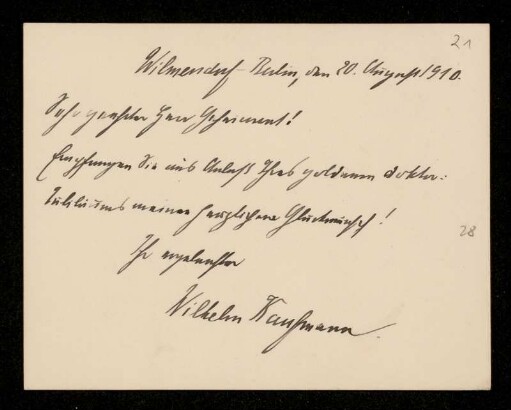 21
Wilmersdorf-Berlin, den 20. August 1910.
Sehr geehrter Herr Geheimrat!
Empfangen Sie aus Anlaß Ihres goldenen Doktor-
Jubiläums meinen herzlichen Glückwunsch!
Ihr ergebenster
Wilhelm Kaufmann.
28